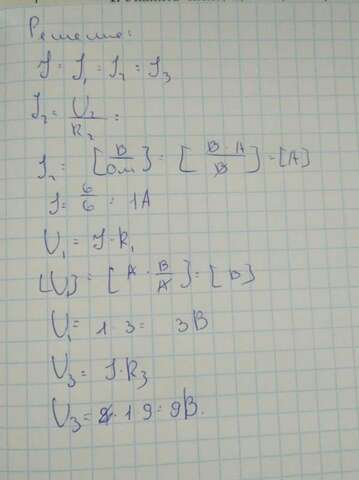 Решение:
I = I₁ = I₂ = I₃
I₂ = U₂/R₂ =
I₂ = [В/Ом] = [В·А/В] = [А]
I = 6/6 = 1А
U₁ = I·R₁
[U₁] = [А · В/А] = [В]
U₁ = 1·3 = 3В
U₃ = I·R₃
U₃ = 1·9 = 9В.